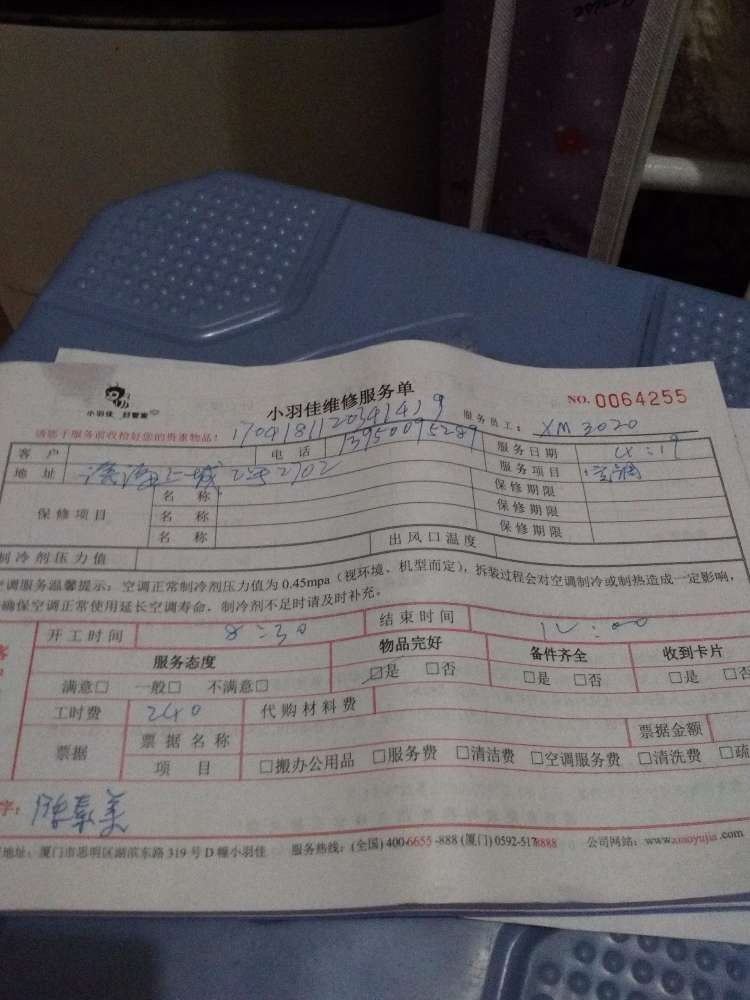 小羽佳 好管家
小羽佳维修服务单
NO. 0064255
请您于服务前收拾好您的贵重物品!
1704181120341419
服务员工: XM 3020
客 户
电 话 13950095289
服务日期
地址 2702
服务项目 空调
保修项目
名 称
保修期限
名 称
保修期限
名 称
保修期限
制冷剂压力值
出风口温度
空调服务温馨提示: 空调正常制冷剂压力值为 0.45mpa (视环境、机型而定), 拆装过程会对空调制冷或制热造成一定影响,
确保空调正常使用延长空调寿命, 制冷剂不足时请及时补充。
开工时间 8:30 结束时间
服务态度 物品完好 备件齐全 收到卡片
满意□ 一般□ 不满意□ □是 □否 □是 □否 □是 □否
工时费 240 代购材料费
票据 票据名称 票据金额
项 目 □搬办公用品 □服务费 □清洁费 □空调服务费 □清洗费 □疏
字:
地址: 厦门市思明区湖滨东路 319 号 D 幢小羽佳 服务热线: (全国) 400-6655-888 (厦门) 0592-5178888 公司网站: www.xiaoyujia.com